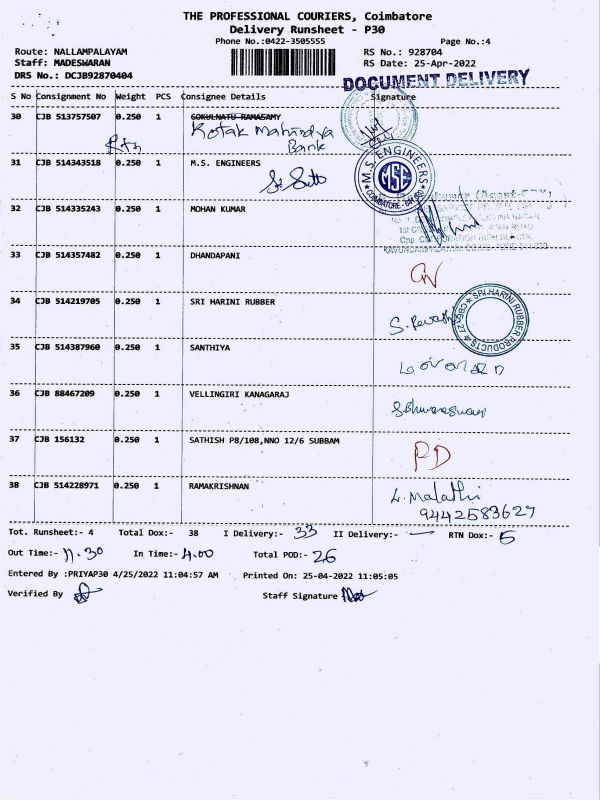 THE PROFESSIONAL COURIERS, Coimbatore
Delivery Runsheet - P30
Phone No.:0422-3505555 Page No.:4
Route: NALLAMPALAYAM RS No.: 928704
Staff: MADESWARAN RS Date: 25-Apr-2022
DRS No.: DCJB92870404
DOCUMENT DELIVERY
S No Consignment No Weight PCS Consignee Details Signature
30 CJB 513757507 0.250 1 GOKULNATU RAMASAMY
Kotak Mahindya
Bank
31 CJB 514343518 0.250 1 M.S. ENGINEERS
M.S. ENGINEERS
MSE
32 CJB 514335243 0.250 1 MOHAN KUMAR
33 CJB 514357482 0.250 1 DHANDAPANI
34 CJB 514219705 0.250 1 SRI HARINI RUBBER
SRI HARINI RUBBER PRODUCTS
35 CJB 514387960 0.250 1 SANTHIYA
36 CJB 88467209 0.250 1 VELLINGIRI KANAGARAJ
37 CJB 156132 0.250 1 SATHISH P8/108,NNO 12/6 SUBBAM
PD
38 CJB 514228971 0.250 1 RAMAKRISHNAN
L. Malathi
9442583627
Tot. Runsheet:- 4 Total Dox:- 38 I Delivery:- 33 II Delivery:- — RTN Dox:- 5
Out Time:- 11.30 In Time:- 4.00 Total POD:- 26
Entered By :PRIYAP30 4/25/2022 11:04:57 AM Printed On: 25-04-2022 11:05:05
Verified By Staff Signature